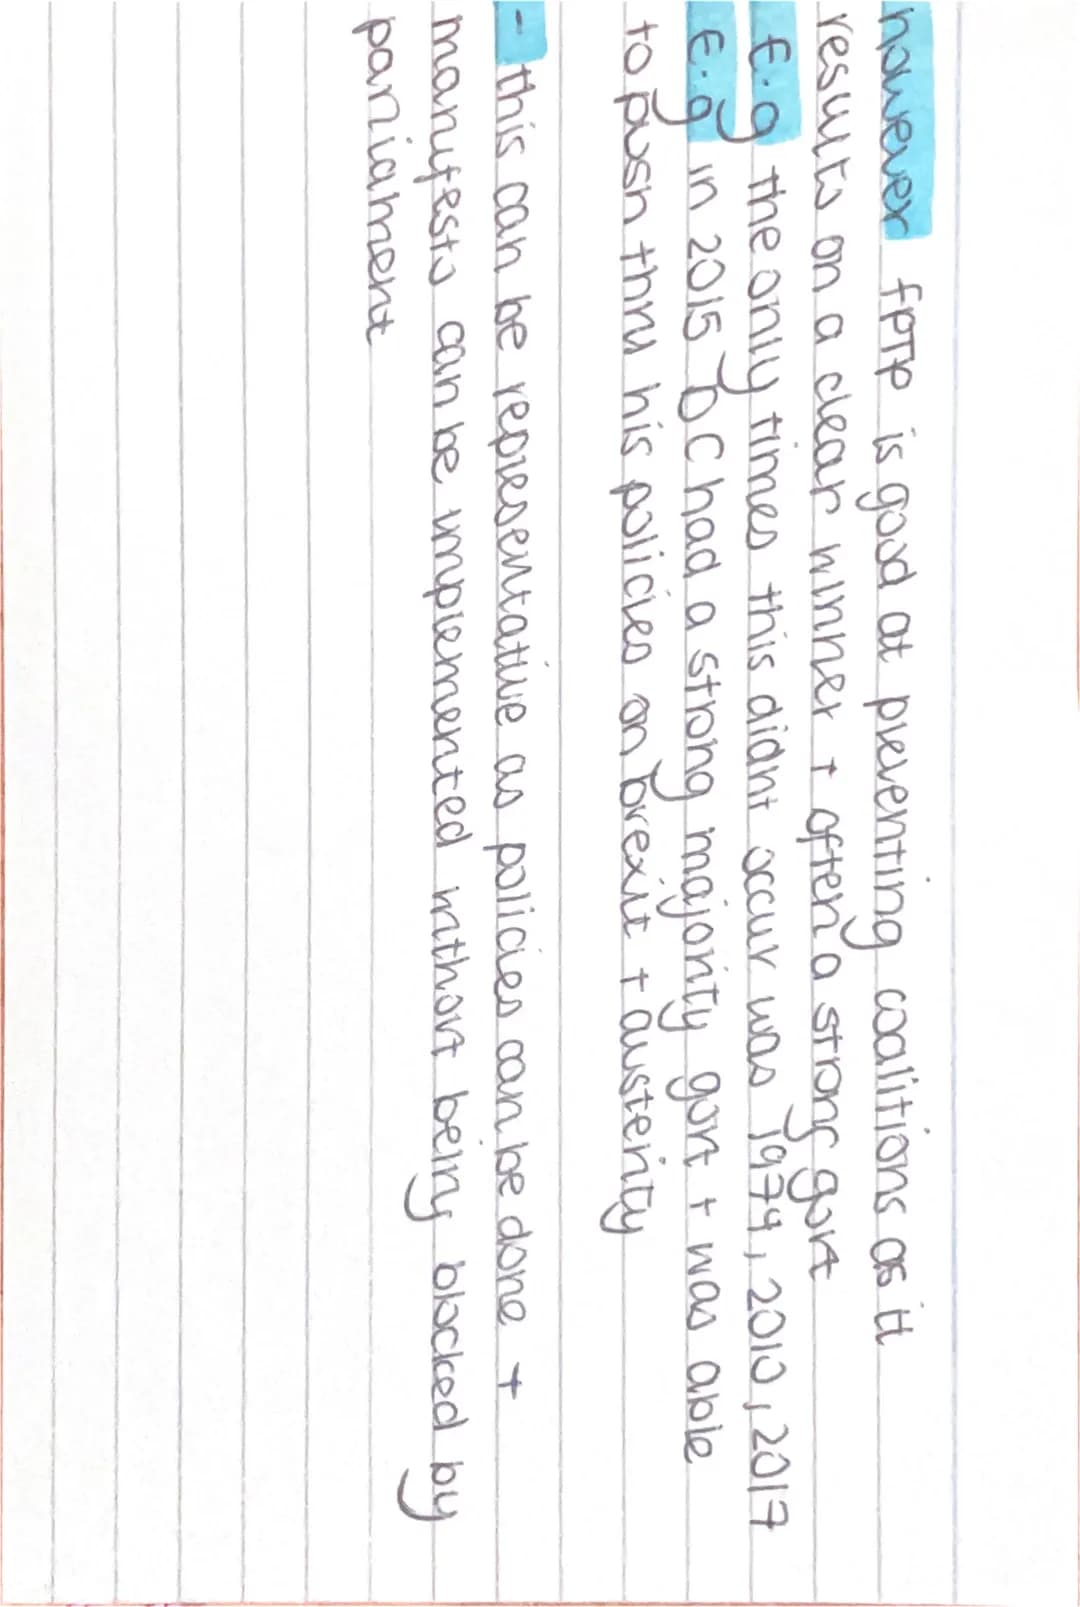 however fPTP is good at preventing coalitions as it
results on a clear winner + often a strong govt
E.g the only times this didnt occur was 1974, 2010, 2017
E.g in 2015 DC had a strong majority govt + was able
to push thru his policies on brexit + austerity
- this can be representative as policies can be done +
manifesto can be implemented without being blocked by
parliament